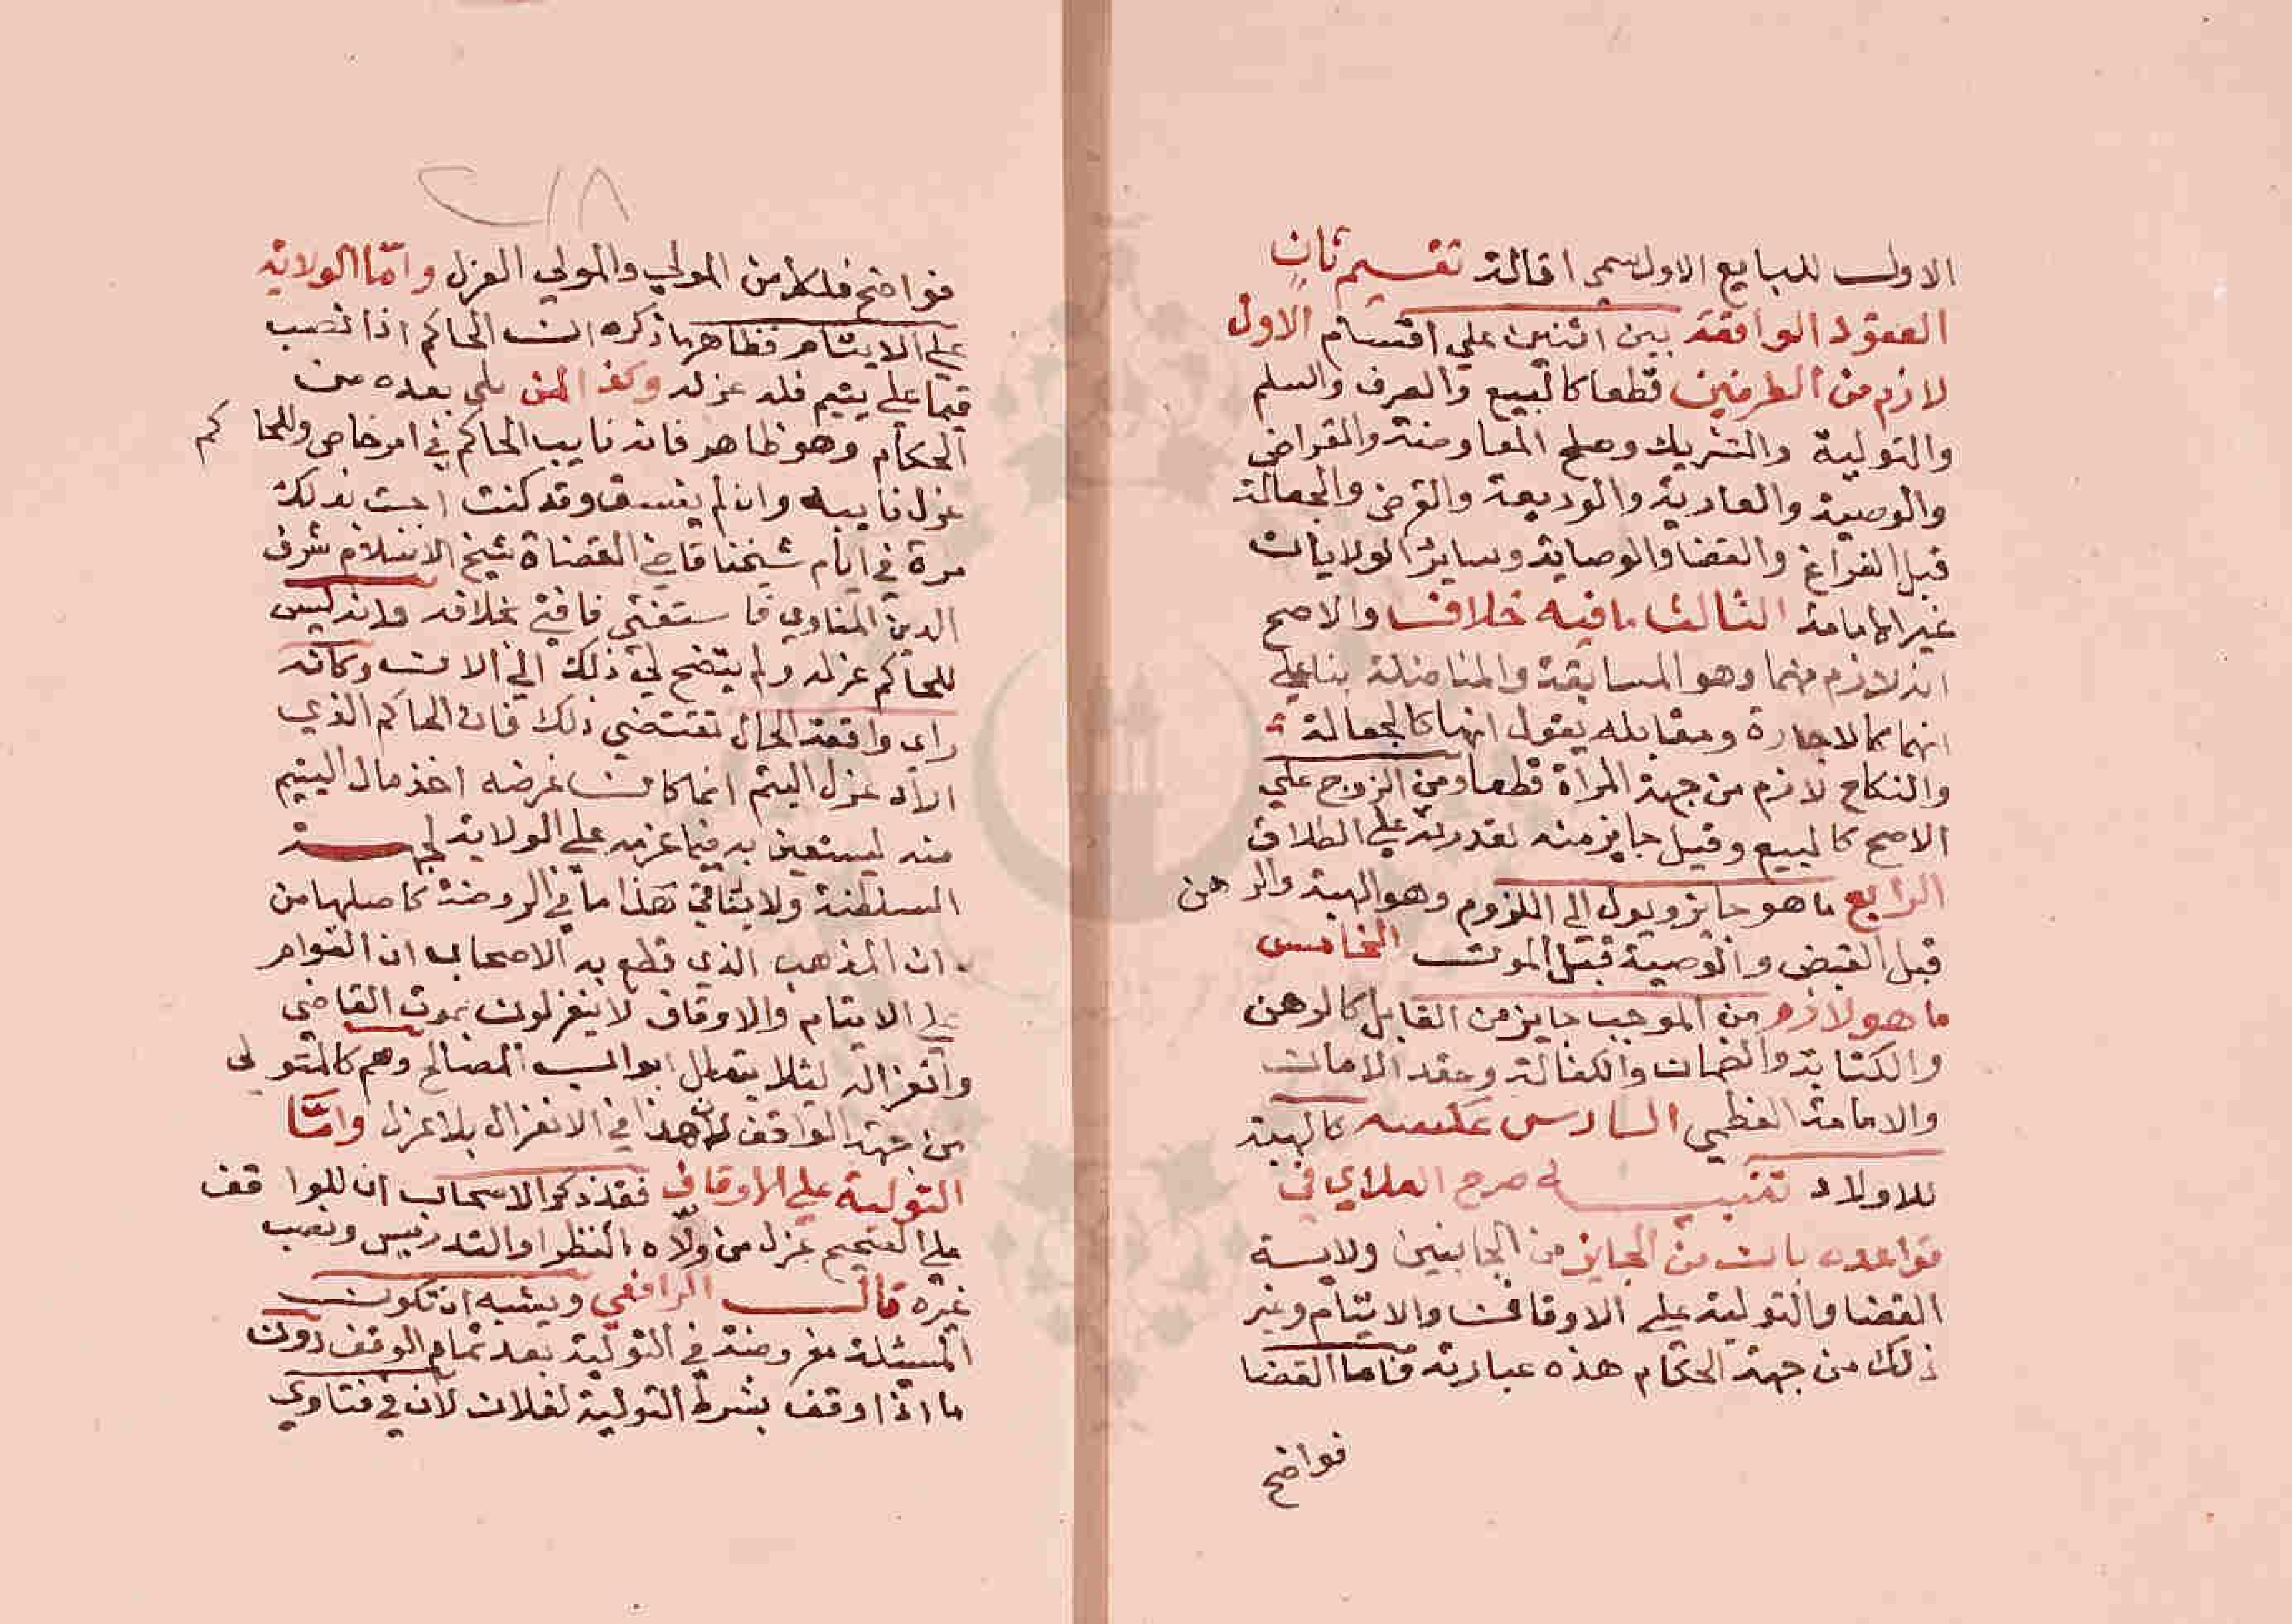 الاول للبايع الاول سمي اقالة تقسيم ثان
العقود الواقعة بين اثنين علي اقسام الاول
لازم من الطرفين قطعا كالبيع والصرف والسلم
والتولية والتشريك وصلح المعاوضة والقراض
والوصية والعارية والوديعة والقرض والجعالة
قبل الفراغ والقضا والوصاية وساير الولايات
غير الامامة الثالث ما فيه خلاف والاصح
انه لازم منهما وهو المسابقة والمناضلة بنا علي
انهما كالاجارة ومقابله يقول انها كالجعالة
والنكاح لازم من جهة المراة قطعا ومن الزوج علي
الاصح كالبيع وقيل جايز منه لقدرته علي الطلاق
الرابع ما هو جايز ويول الي اللزوم وهو الهبة والرهن
قبل القبض والوصية قبل الموت الخامس
ما هو لازم من الموجب جايز من القابل كالرهن
والكتابة والضمان والكفالة وعقد الامان
والامامة العظمي السادس عكسه كالهبة
للاولاد تنبيه صرح العلاي في
قواعده بان من الجايز من الجانبين ولاية
القضا والتولية علي الاوقاف والايتام وغير
ذلك من جهة الحكام هذه عبارته فاما القضا
فواضح
فواضح فلكل من المولي والمولي العزل واما الولاية
علي الايتام فظاهر ما ذكره ان الحاكم اذا نصب
قيما علي يتيم فله عزله وكذا لمن يلي بعده من
الحكام وهو ظاهر فانه نايب الحاكم في امر خاص وللحاكم
عزل نايبه وان لم يفسق وقد كنت اجبت بذلك
مرة في ايام شيخنا قاضي القضاة شيخ الاسلام شرف
الدين المناوي فاستفتي فافتي بخلافه وانه ليس
للحاكم عزله ولم يتضح لي ذلك الي الان وكانه
راي واقعة الحال تقتضي ذلك فان الحاكم الذي
اراد عزل اليتم انما كان غرضه اخذ مال اليتيم
منه ليستعين به فيما غرمه علي الولاية لجهة
السلطنة ولا ينافي هذا ما في الروضة كاصلها من
ان المذهب الذي قطع به الاصحاب ان القوام
علي الايتام والاوقاف لا ينعزلون بموت القاضي
وانعزاله ليلا يتعطل ابواب المصالح وهم كالمتولي
من جهة الواقف لان هذا في الانعزال بلا عزل واما
التولية علي الاوقاف فقد ذكر الاصحاب ان للواقف
علي الصحيح عزل من ولاه النظر او التدريس ونصب
غيره قال الرافعي ويشبه ان تكون
المسئلة مفروضة في التولية بعد تمام الوقف دون
ما اذا وقف بشرط التولية لفلان لان في فتاوي